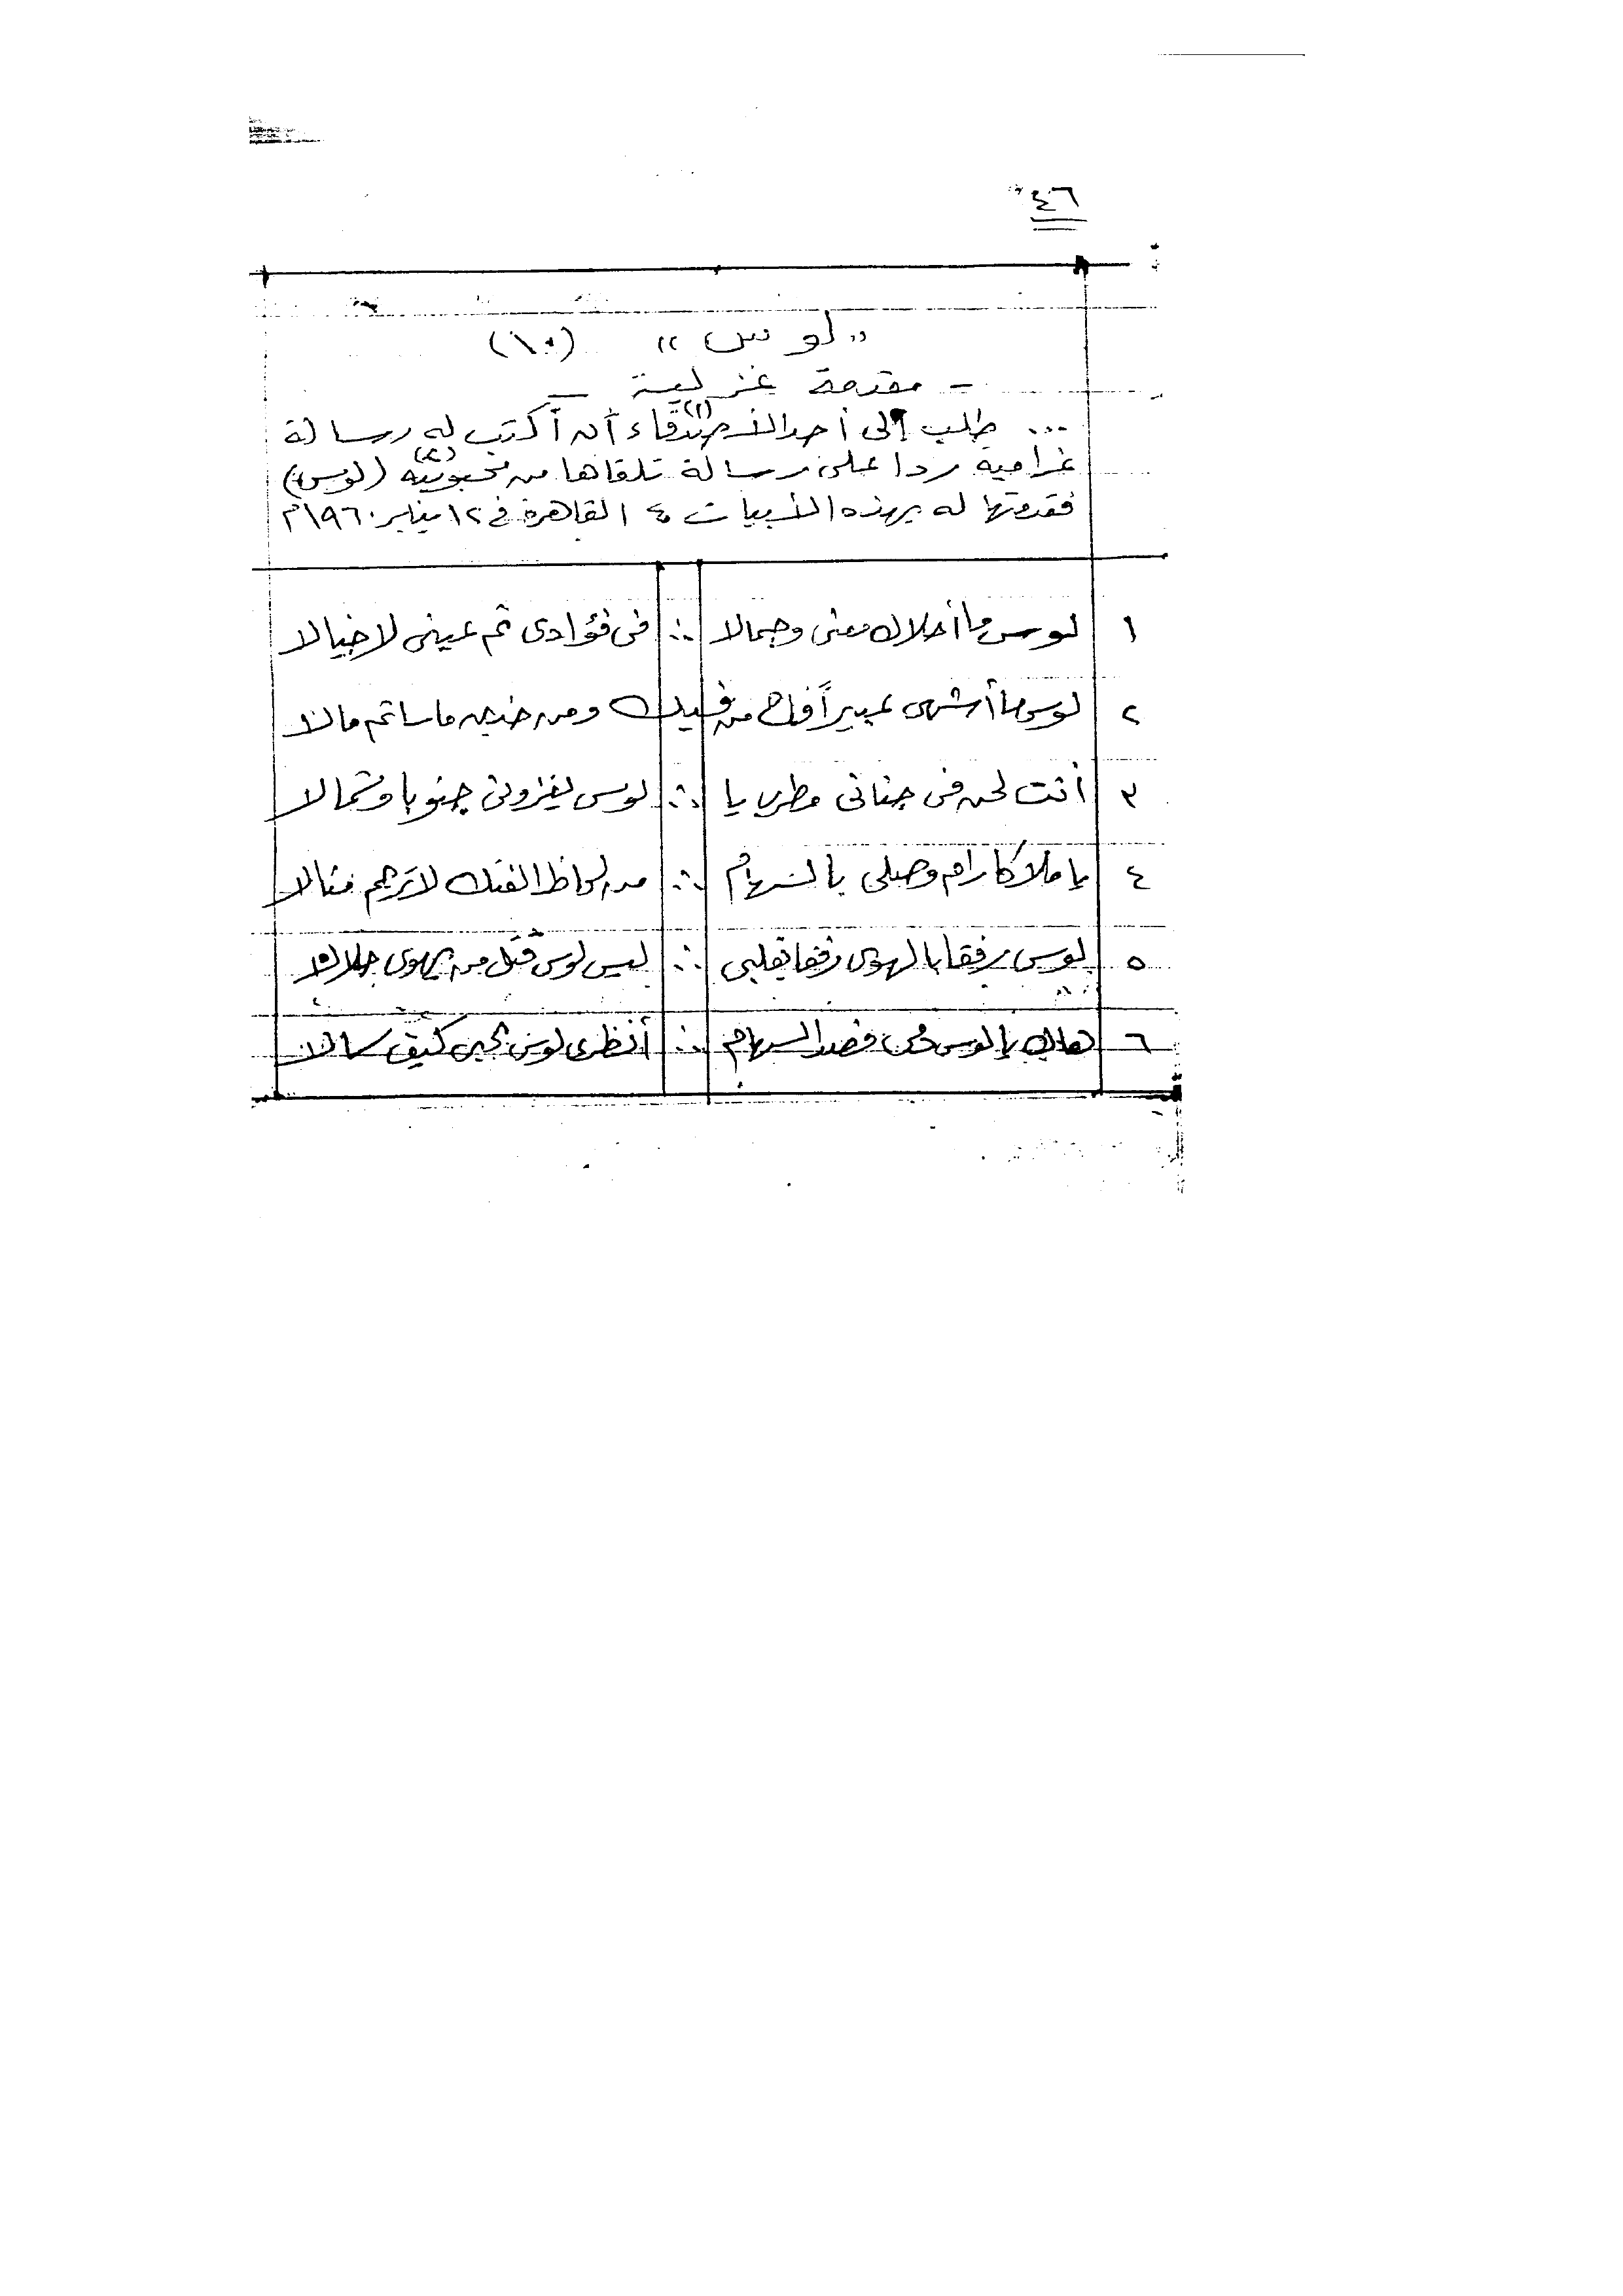 ٤٦
« لوس » (١٠)
- مقدمة غزلية -
... طلب إلى أحد الأصدقاء (١) أن أكتب له رسالة
غرامية ردا على رسالة تلقاها من محبوبته (٢) (لوس)
فقدمتها له بهذه الأبيات ، القاهرة في ١٢ يناير ١٩٦٠م
١ لوس ما أحلاك معنى وجمالا ∴ فى فؤادى ثم عينى لا خيالا
٢ لوس ما أشهى عبيراً فاح من فيك ومن خديه ماسا ثم مالا
٣ أنت لحن فى جنانى مطرب يا ∴ لوس يغزونى جنوبا وشمالا
٤ يا ملاكا رام وصلى بالسهام ∴ من لواظ الفتك لا ترحم قتالا
٥ لوس رفقا بالهوى رفقا بقلبى ∴ ليس لوس قتل من يهوى حلالا
٦ هاك يا لوس دمى فصد السهام ∴ أنظرى لوس بجبى كيف سالا